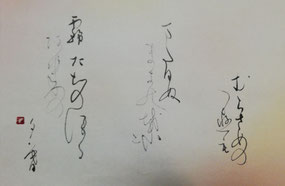 むらさめの
露も
まだひぬ
まきの葉に
霧たちのほる
あきの
夕暮